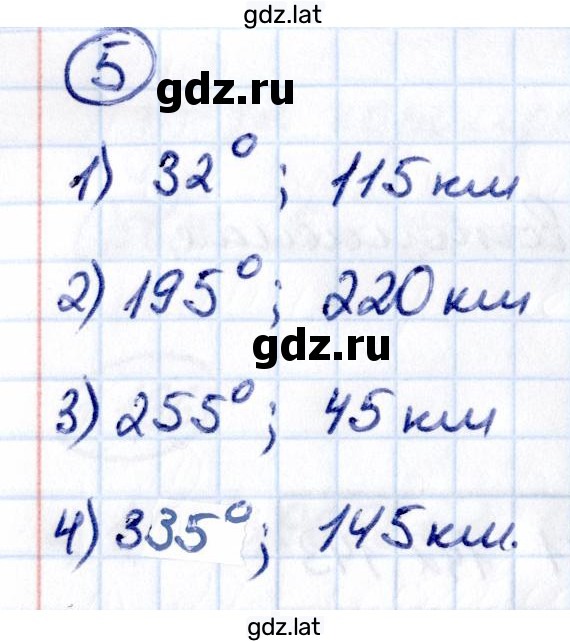 gdz.lat
5
gdz.ru
1) 32°; 115 км
2) 195°; 220 км
gdz.ru
3) 255°; 45 км
4) 335°; 145 км.
gdz.lat